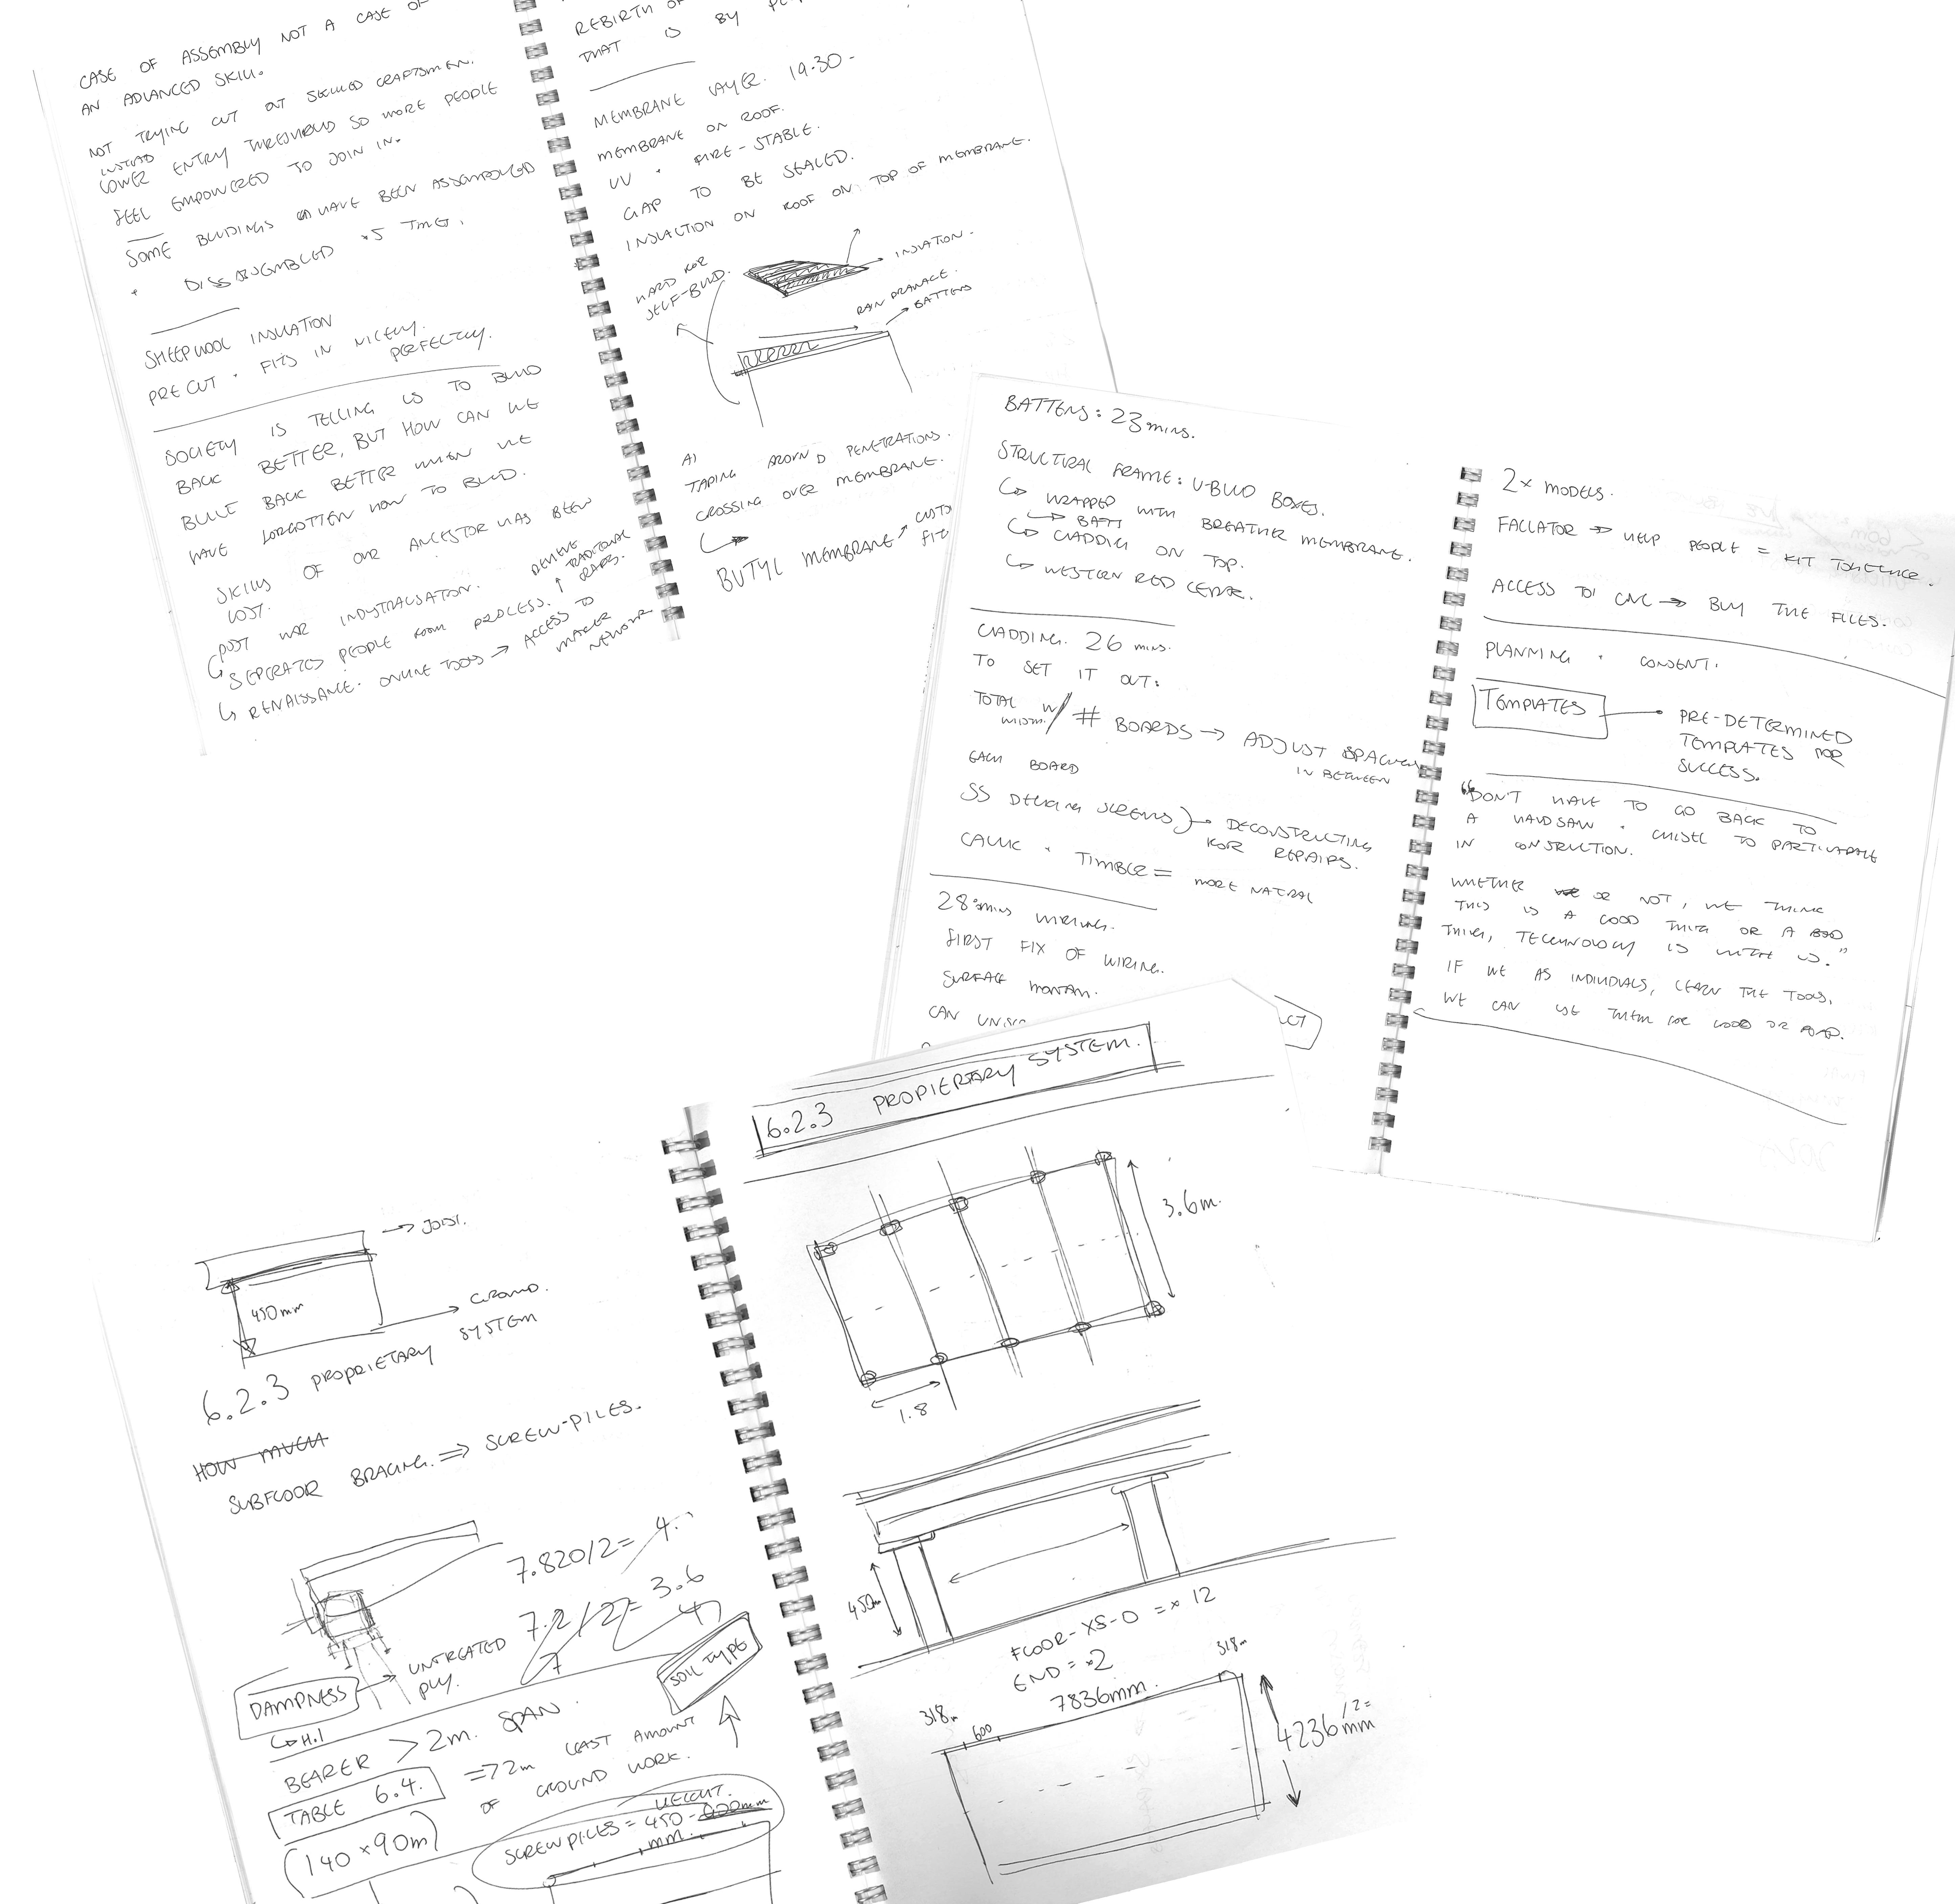 CASE OF ASSEMBLY NOT A CASE OF
AN ADVANCED SKILL.
NOT TRYING CUT OUT SKILLED CRAFTSMEN.
INSTEAD
LOWER ENTRY THRESHOLD SO MORE PEOPLE
FEEL EMPOWERED TO JOIN IN.
SOME BUILDINGS HAVE BEEN ASSEMBLED
+ DISSASSEMBLED ×5 TIME.
SHEEPWOOL INSULATION
PRE CUT + FITS IN NICELY.
PERFECTLY.
SOCIETY IS TELLING US TO BUILD
BACK BETTER, BUT HOW CAN WE
BUILT BACK BETTER WHEN WE
HAVE FORGOTTEN HOW TO BUILD.
SKILLS OF OUR ANCESTOR HAS BEEN
LOST.
POST WAR INDUSTRALISATION.
SEPERATED PEOPLE FROM PROCESS.
RENAISSANCE. ONLINE TOOLS → ACCESS TO
MAKER
NETWORK
TRADITIONAL
CRAFTS.
REBIRTH OF
THAT IS BY
MEMBRANE LAYER. 19:30 -
MEMBRANE ON ROOF.
UV + FIRE-STABLE.
GAP TO BE SEALED.
INSULATION ON ROOF ON TOP OF MEMBRANE.
HARD FOR
SELF-BUILD.
INSULATION.
RAIN DRAINAGE.
BATTENS
TAPING AROUND PENETRATIONS.
CROSSING OVER MEMBRANE.
BUTYL MEMBRANE
BATTENS: 23 MINS.
STRUCTURAL FRAME: U-BUILD BOXES.
WRAPPED WITH BREATHER MEMBRANE.
BATT
CLADDING ON TOP.
WESTERN RED CEDAR.
CLADDING. 26 MINS.
TO SET IT OUT:
TOTAL W / # BOARDS → ADJUST SPACING
WIDTH. IN BETWEEN
EACH BOARD
SS DECKING SCREWS → DECONSTRUCTING
FOR REPAIRS.
CAULK + TIMBER = MORE NATURAL
28 MINS WIRING.
FIRST FIX OF WIRING.
SURFACE
CAN
2× MODELS.
HELP PEOPLE = KIT TOGETHER.
ACCESS TO CNC → BUY THE FILES.
PLANNING + CONSENT.
TEMPLATES
PRE-DETERMINED
TEMPLATES FOR
SUCCESS.
"DON'T HAVE TO GO BACK TO
A HANDSAW + CHISEL TO PARTICIPATE
IN CONSTRUCTION.
WHETHER OR NOT, WE THINK
THIS IS A GOOD THING OR A BAD
THING, TECHNOLOGY IS WITH US."
IF WE AS INDIVIDUALS, LEARN THE TOOLS,
WE CAN USE THEM FOR GOOD OR BAD.
→ JOIST.
450mm
GROUND.
SYSTEM
6.2.3 PROPRIETARY
HOW MUCH
SUBFLOOR BRACING. ⇒ SCREW-PILES.
7.820/2= 4.
7.2/2= 3.6
4
7
DAMPNESS → UNTREATED
PLY.
H.1
SOIL TYPE
BEARER > 2m. SPAN.
TABLE 6.4. ⇒ 2m LEAST AMOUNT
OF GROUND WORK.
(140 × 90m)
HEIGHT.
SCREW PILES = 450 -
mm.
6.2.3 PROPIERTARY SYSTEM.
3.6m.
1.8
450m
FLOOR-XS-0 = × 12
END = ×2
318m
7836mm.
318m
600
4236mm /2=